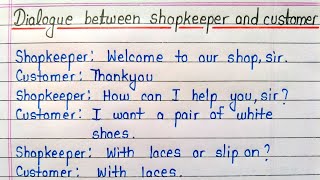 Dialogue between shopkeeper and customer
Shopkeeper: Welcome to our shop, sir.
Customer: Thankyou
Shopkeeper: How can I help you, sir?
Customer: I want a pair of white
shoes.
Shopkeeper: With laces or slip on?
Customer: With laces.